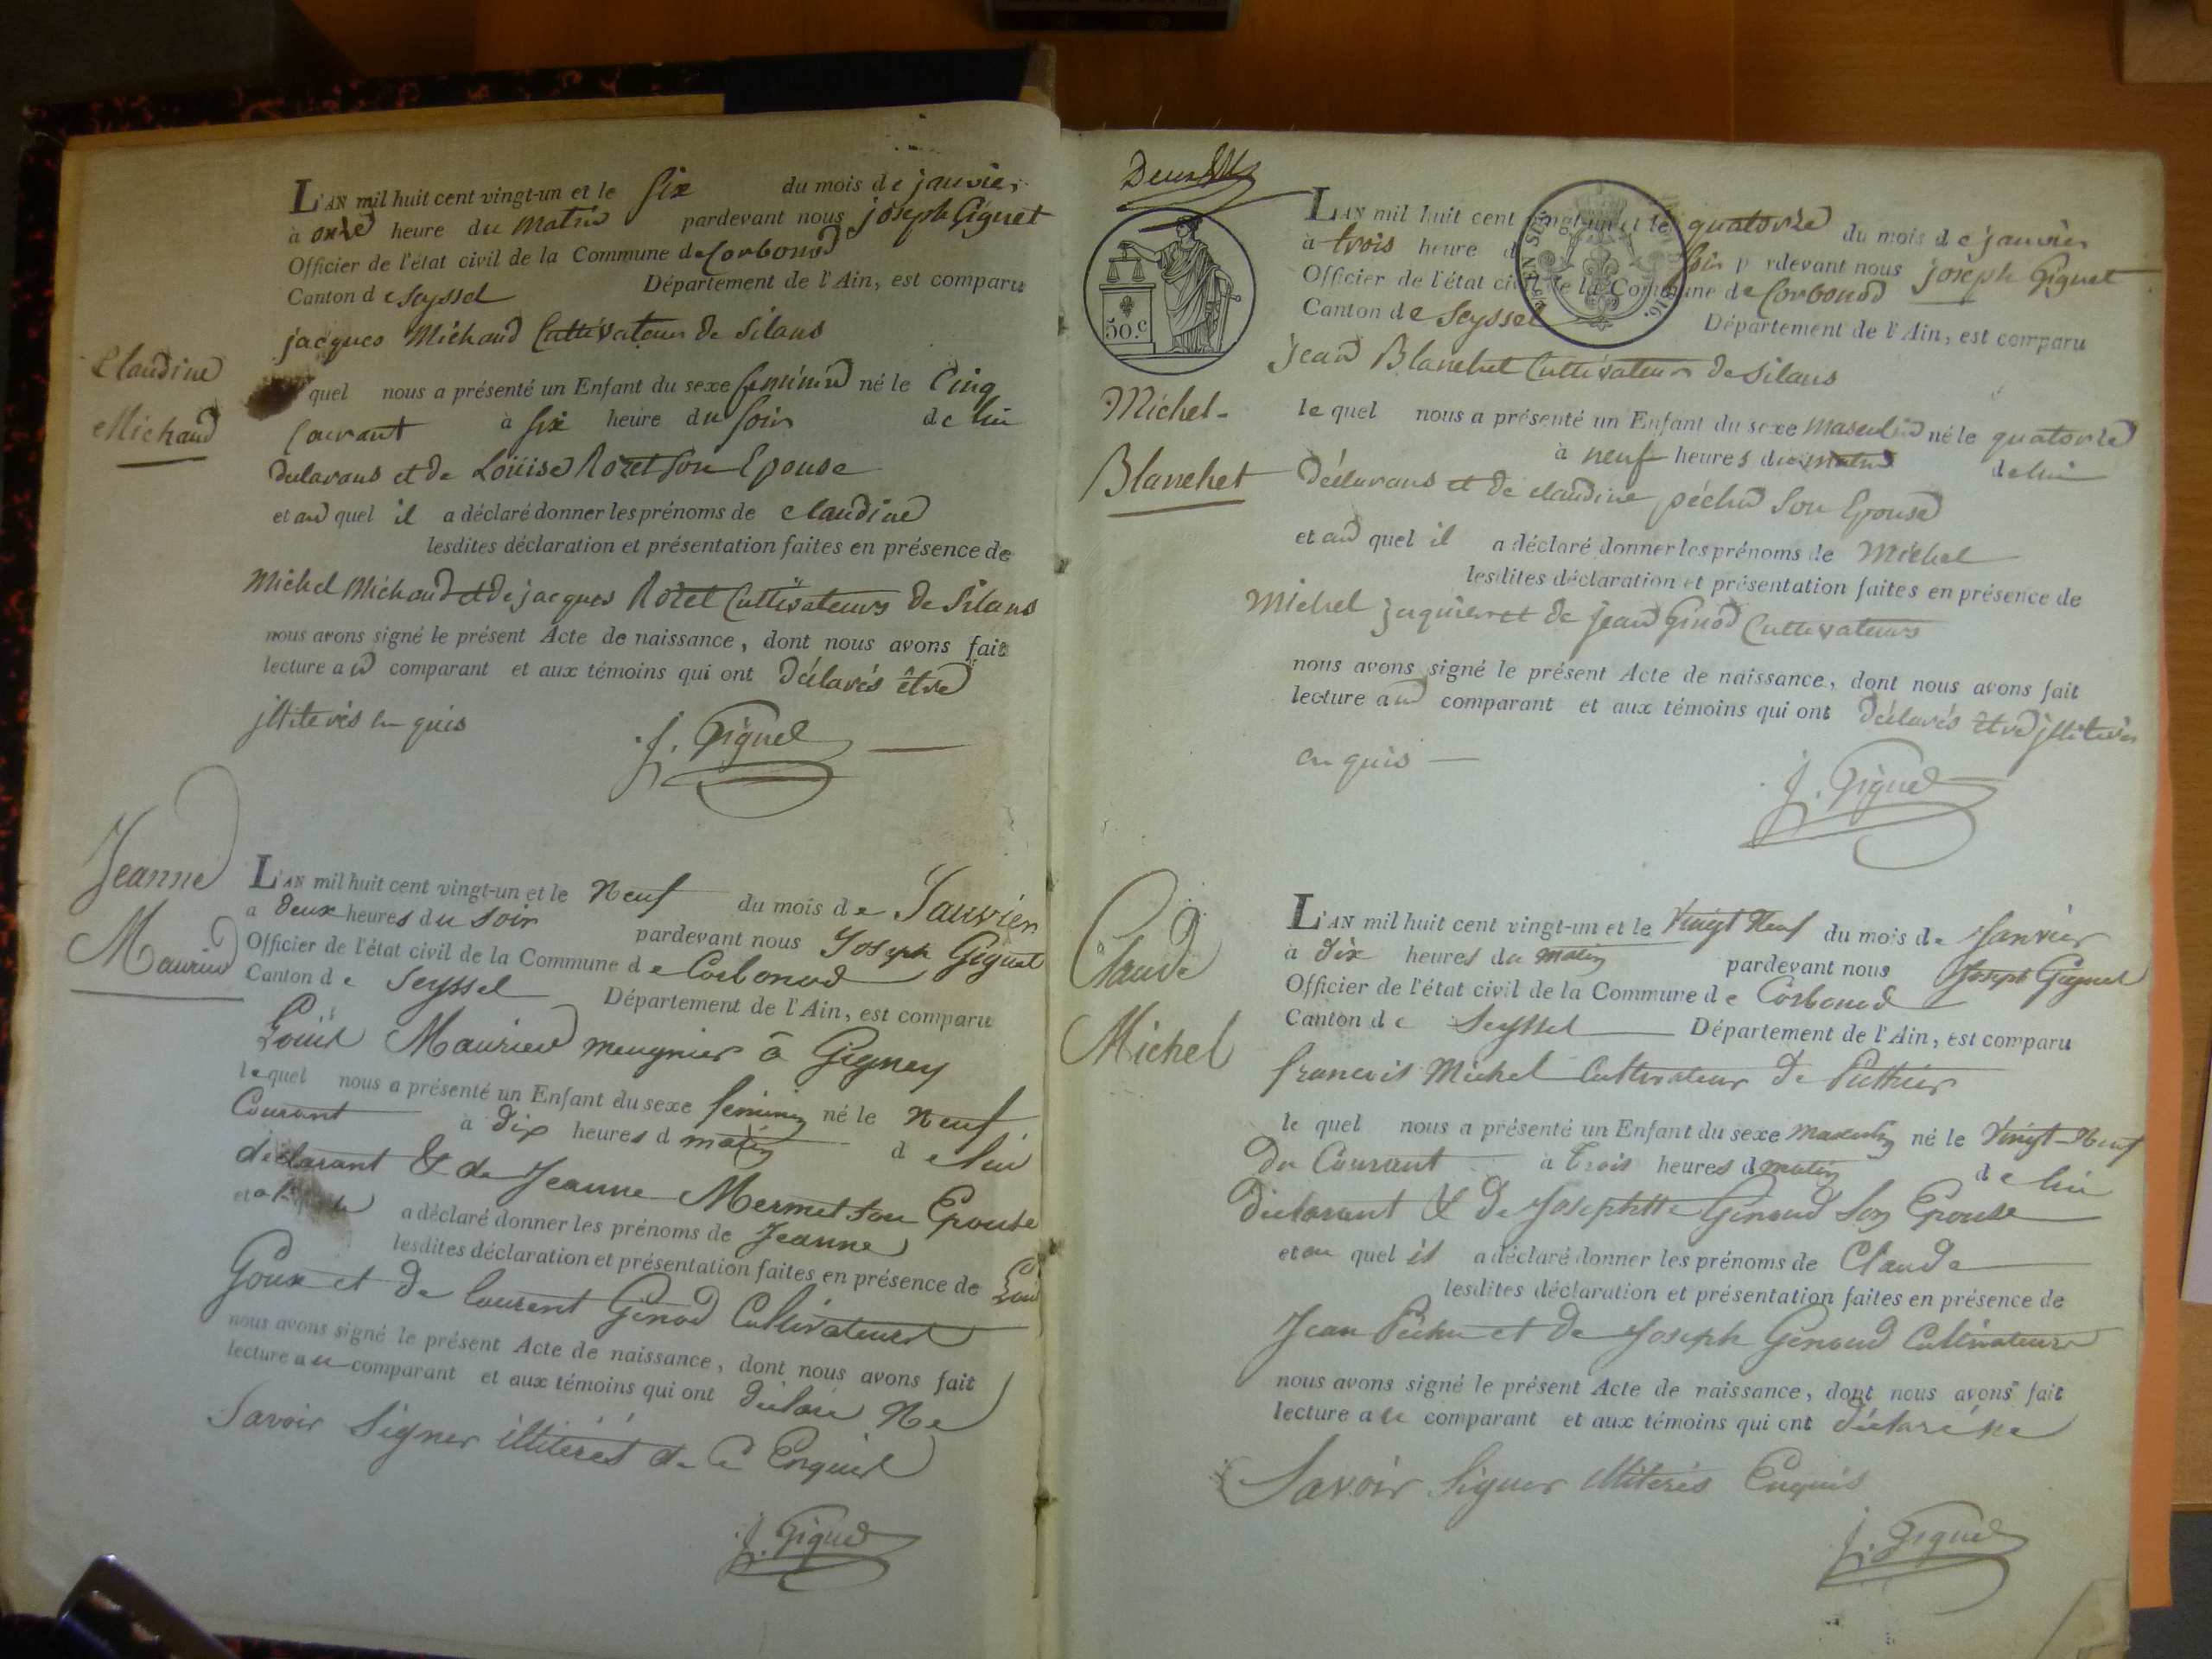 Claudine
Michaud
L'AN mil huit cent vingt-un et le six du mois de janvier
à onze heure du matin pardevant nous joseph Giguet
Officier de l'état civil de la Commune de Corbonod
Canton de Seyssel Département de l'Ain, est comparu
jacques Michaud Cultivateur de Silans
quel nous a présenté un Enfant du sexe feminin né le Cinq
Courant à six heure du soir de lui
declarans et de Loüise Rozet son Epouse
et au quel il a déclaré donner les prénoms de claudine
lesdites déclaration et présentation faites en présence de
Michel Michaud et de jacques Rozet Cultivateurs de Silans
nous avons signé le présent Acte de naissance, dont nous avons fait
lecture au comparant et aux témoins qui ont déclarés être
jlliterés enquis
J. Giguet
Jeanne
Maurier
L'AN mil huit cent vingt-un et le Neuf du mois de Janvier
a deux heures du soir pardevant nous Joseph Giguet
Officier de l'état civil de la Commune de Corbonod
Canton de Seyssel Département de l'Ain, est comparu
Louis Maurier meugnier à Gigney
lequel nous a présenté un Enfant du sexe feminin né le Neuf
Courant à dix heures d matin de lui
déclarant & de Jeanne Mermet son Epouse
et a déclaré donner les prénoms de Jeanne
lesdites déclaration et présentation faites en présence de Loui
Goux et de Laurent Genod Cultivateurs
nous avons signé le présent Acte de naissance, dont nous avons fait
lecture au comparant et aux témoins qui ont déclaré Ne
Savoir Signer illiterés de ce Enquis
J. Giguet
50.c
1816.
Michel
Blanchet
L'AN mil huit cent vingt-un et le quatorze du mois de janvier
à trois heure d soir pardevant nous joseph Giguet
Officier de l'état civil de la Commune de Corbonod
Canton de Seyssel Département de l'Ain, est comparu
Jean Blanchet Cultivateur de Silans
le quel nous a présenté un Enfant du sexe masculin né le quatorze
à neuf heures du matin de lui
déclarans et de claudine péchu son Epouse
et au quel il a déclaré donner les prénoms de Michel
lesdites déclaration et présentation faites en présence de
Michel juquier et de jean Ginod Cultivateurs
nous avons signé le présent Acte de naissance, dont nous avons fait
lecture au comparant et aux témoins qui ont déclarés être jlliterés
enquis
J. Giguet
Claude
Michel
L'AN mil huit cent vingt-un et le Vingt Neuf du mois de Janvier
à dix heures du matin pardevant nous Joseph Giguet
Officier de l'état civil de la Commune de Corbonod
Canton de Seyssel Département de l'Ain, est comparu
francois Michel Cultivateur de Puthier
le quel nous a présenté un Enfant du sexe masculin né le Vingt-Neuf
du Courant à trois heures d matin de lui
déclarant & de Josephtte Genoud son Epouse
et au quel il a déclaré donner les prénoms de Claude
lesdites déclaration et présentation faites en présence de
Jean Péchu et de Joseph Genoud Cultivateurs
nous avons signé le présent Acte de naissance, dont nous avons fait
lecture au comparant et aux témoins qui ont déclaré ne
Savoir Signer illiterés Enquis
J. Giguet